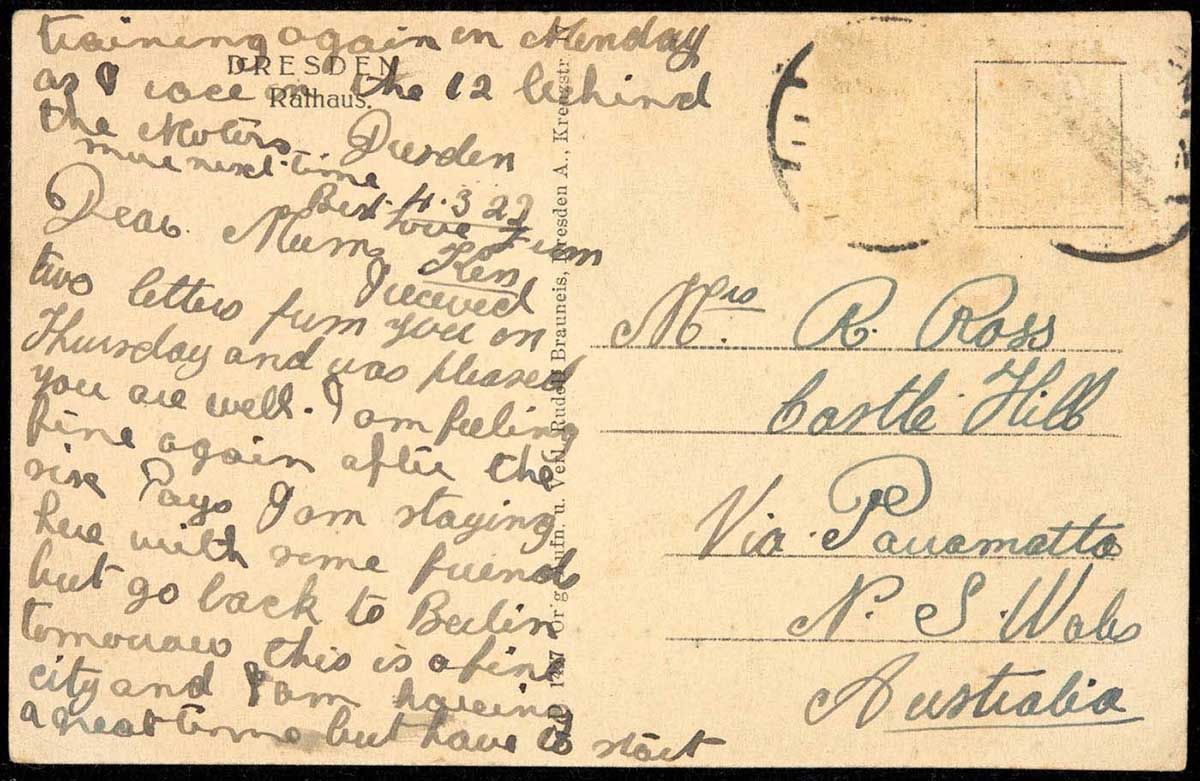 training again on Monday
DRESDEN
as I race on the 12 behind
Rathaus.
the Motors
more next time
Best love from
Ken
Dresden
4.3.22
Dear Mum
I received
two letters from you on
Thursday and was pleased
you are well. I am feeling
fine again after the
six Days I am staying
here with some friends
but go back to Berlin
tomorrow this is a fine
city and I am having
a great time but have to start
Orig.-Aufn. u. Verl. Rudolf Brauneis, Dresden A., Kreuzstr.
Mrs R. Ross
Castle Hill
Via Parramatta
N. S. Wales
Australia